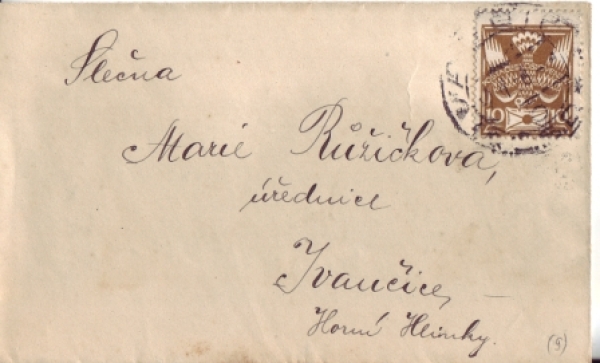 Slečna
Marie Růžičkova,
úřednice
Ivančice,
Horní Hlinky.
10 10
(9)